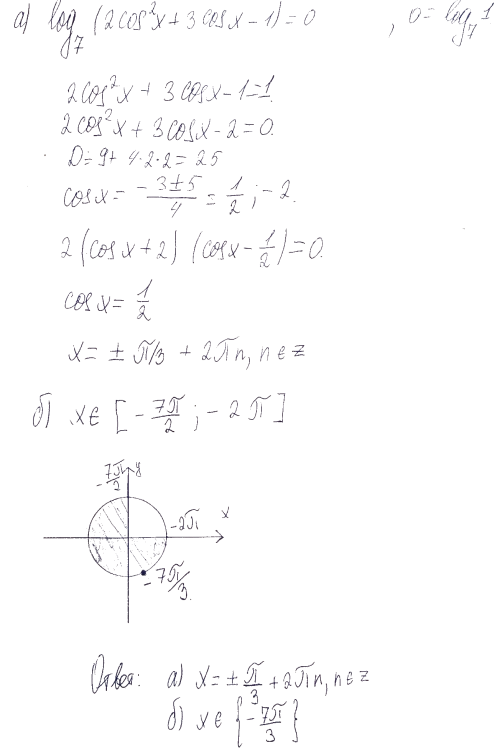 а) log₇(2cos²x + 3cosx - 1) = 0 , 0 = log₇1
2cos²x + 3cosx - 1 = 1
2cos²x + 3cosx - 2 = 0.
D = 9 + 4·2·2 = 25
cosx = (-3±5)/4 = 1/2; -2.
2(cosx + 2)(cosx - 1/2) = 0.
cosx = 1/2
x = ± π/3 + 2πn, n ∈ z
б) x ∈ [-7π/2; -2π]
-7π/2 y
x
-2π
-7π/3.
Ответ: а) x = ± π/3 + 2πn, n ∈ z
б) x ∈ {-7π/3}